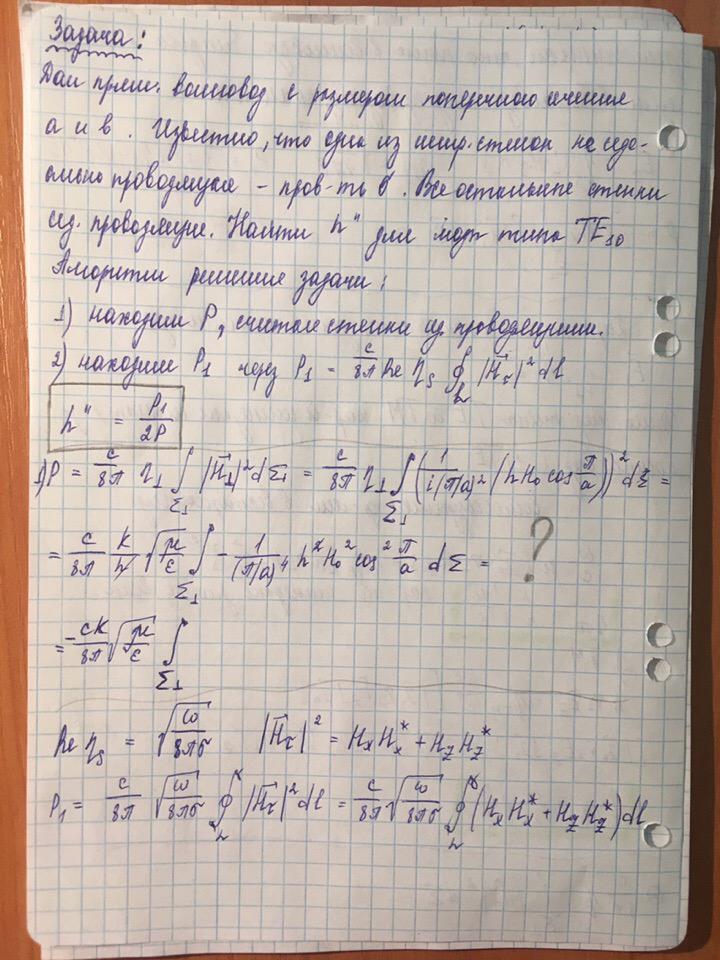 Задача:
Дан прям. волновод с размером поперечного сечения
а и в. Известно, что одна из шир. стенок не иде-
ально проводящая – пров-ть σ. Все остальные стенки
ид. проводящие. Найти h" для моды типа TE₁₀
Алгоритм решения задачи:
1) находим P, считая стенки ид. проводящими.
2) находим P₁ через P₁ = c/8π Re η_s ∮_L |H⃗_τ|² dl
h" = P₁/2P
1) P = c/8π η_⊥ ∫_Σ⊥ |H⃗_⊥|² dΣ = c/8π η_⊥ ∫_Σ⊥ (1/i(π/a)² (h H₀ cos π/a))² dΣ =
= c/8π k/h √(μ/ε) ∫_Σ⊥ – 1/(π/a)⁴ h² H₀² cos² π/a dΣ = ?
= –ck/8π √(μ/ε) ∫_Σ⊥
Re η_s = √(ω/8πσ) |H⃗_τ|² = HₓHₓ* + H_zH_z*
P₁ = c/8π √(ω/8πσ) ∮_L |H⃗_τ|² dl = c/8π √(ω/8πσ) ∮_L (HₓHₓ* + H_zH_z*) dl